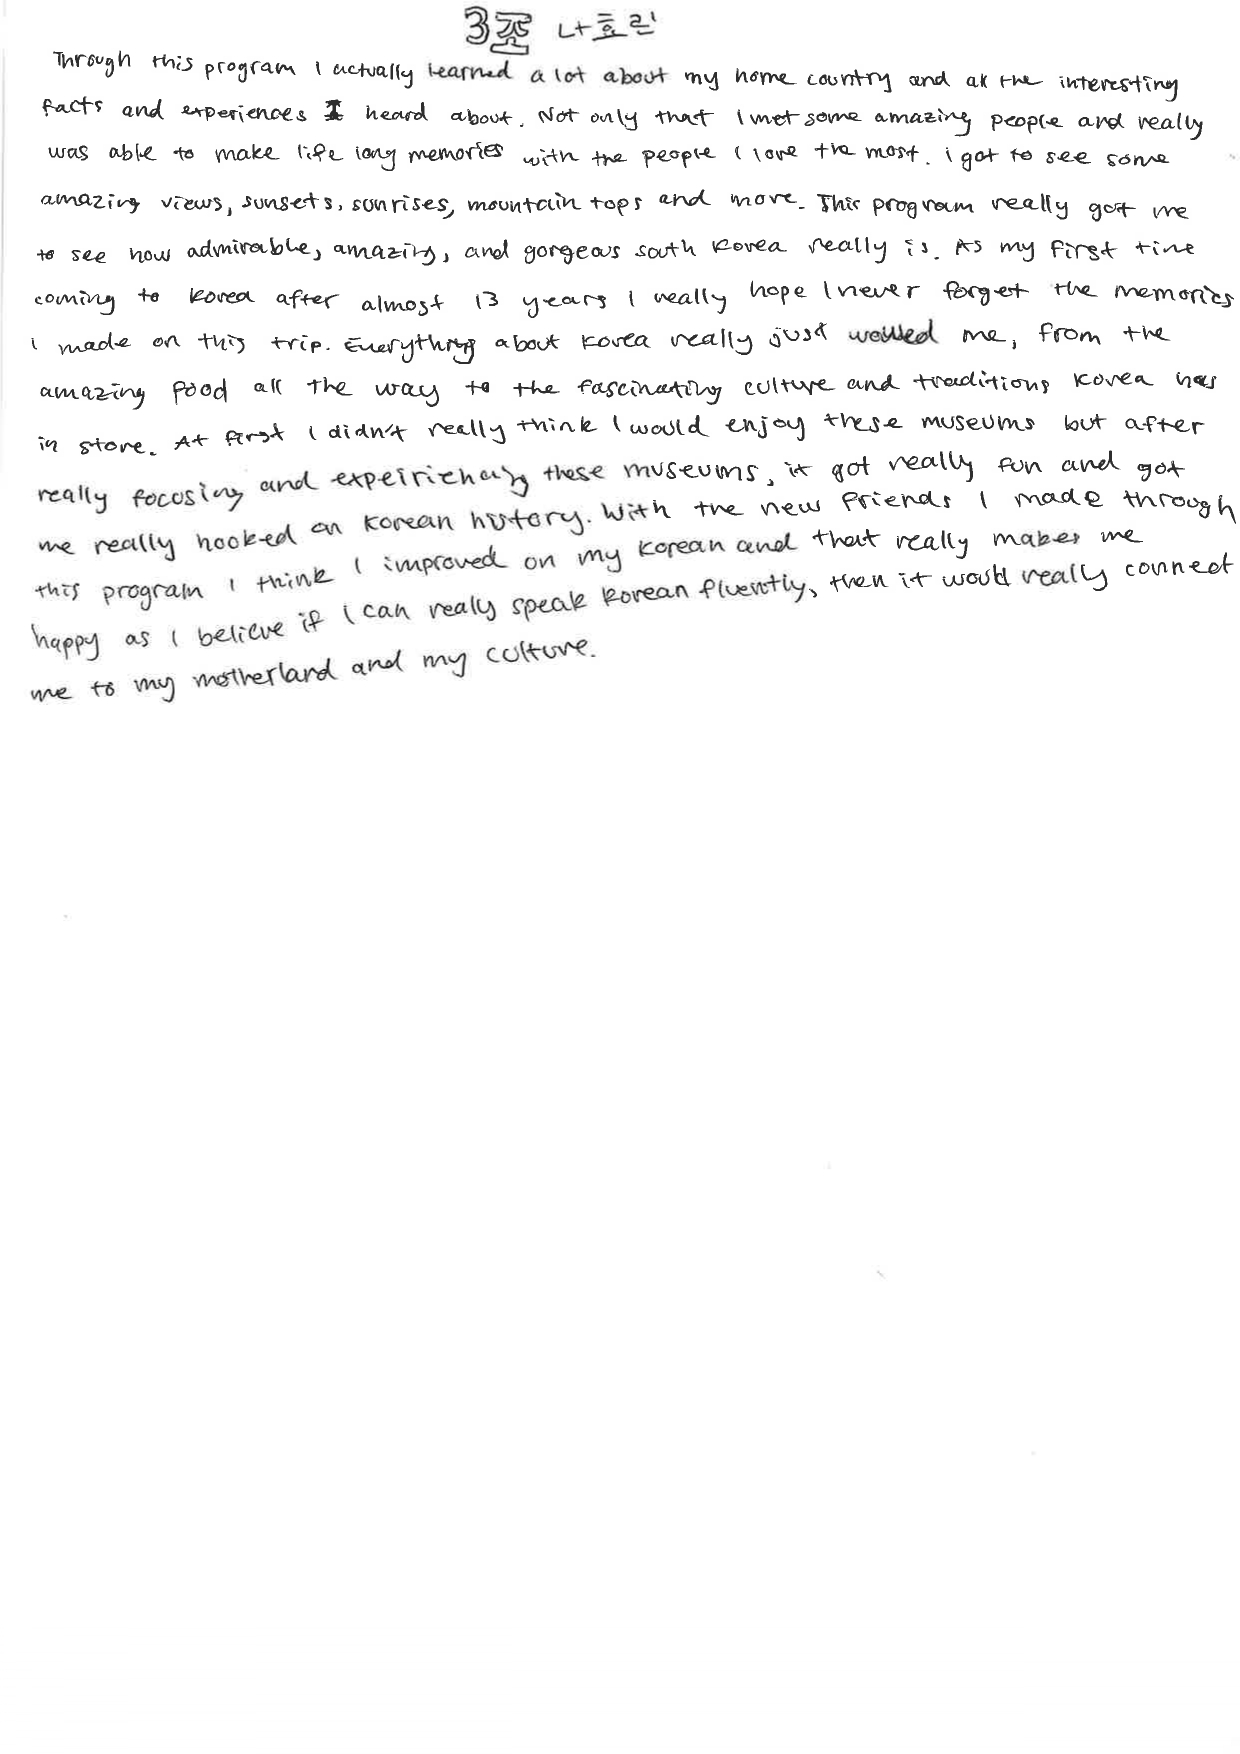 3조 나효린
Through this program I actually learned a lot about my home country and all the interesting
facts and experiences I heard about. Not only that I met some amazing people and really
was able to make life long memories with the people I love the most. i got to see some
amazing views, sunsets, sunrises, mountain tops and more. This program really got me
to see how admirable, amazing, and gorgeous south Korea really is. As my first time
coming to Korea after almost 13 years I really hope I never forget the memories
I made on this trip. Everything about Korea really just wowed me, from the
amazing food all the way to the fascinating culture and traditions Korea has
in store. At first I didn't really think I would enjoy these museums but after
really focusing and expeiriencing these museums, it got really fun and got
me really hooked on Korean history. With the new friends I made through
this program I think I improved on my Korean and that really makes me
happy as I believe if I can realy speak Korean fluently, then it would really connect
me to my motherland and my culture.